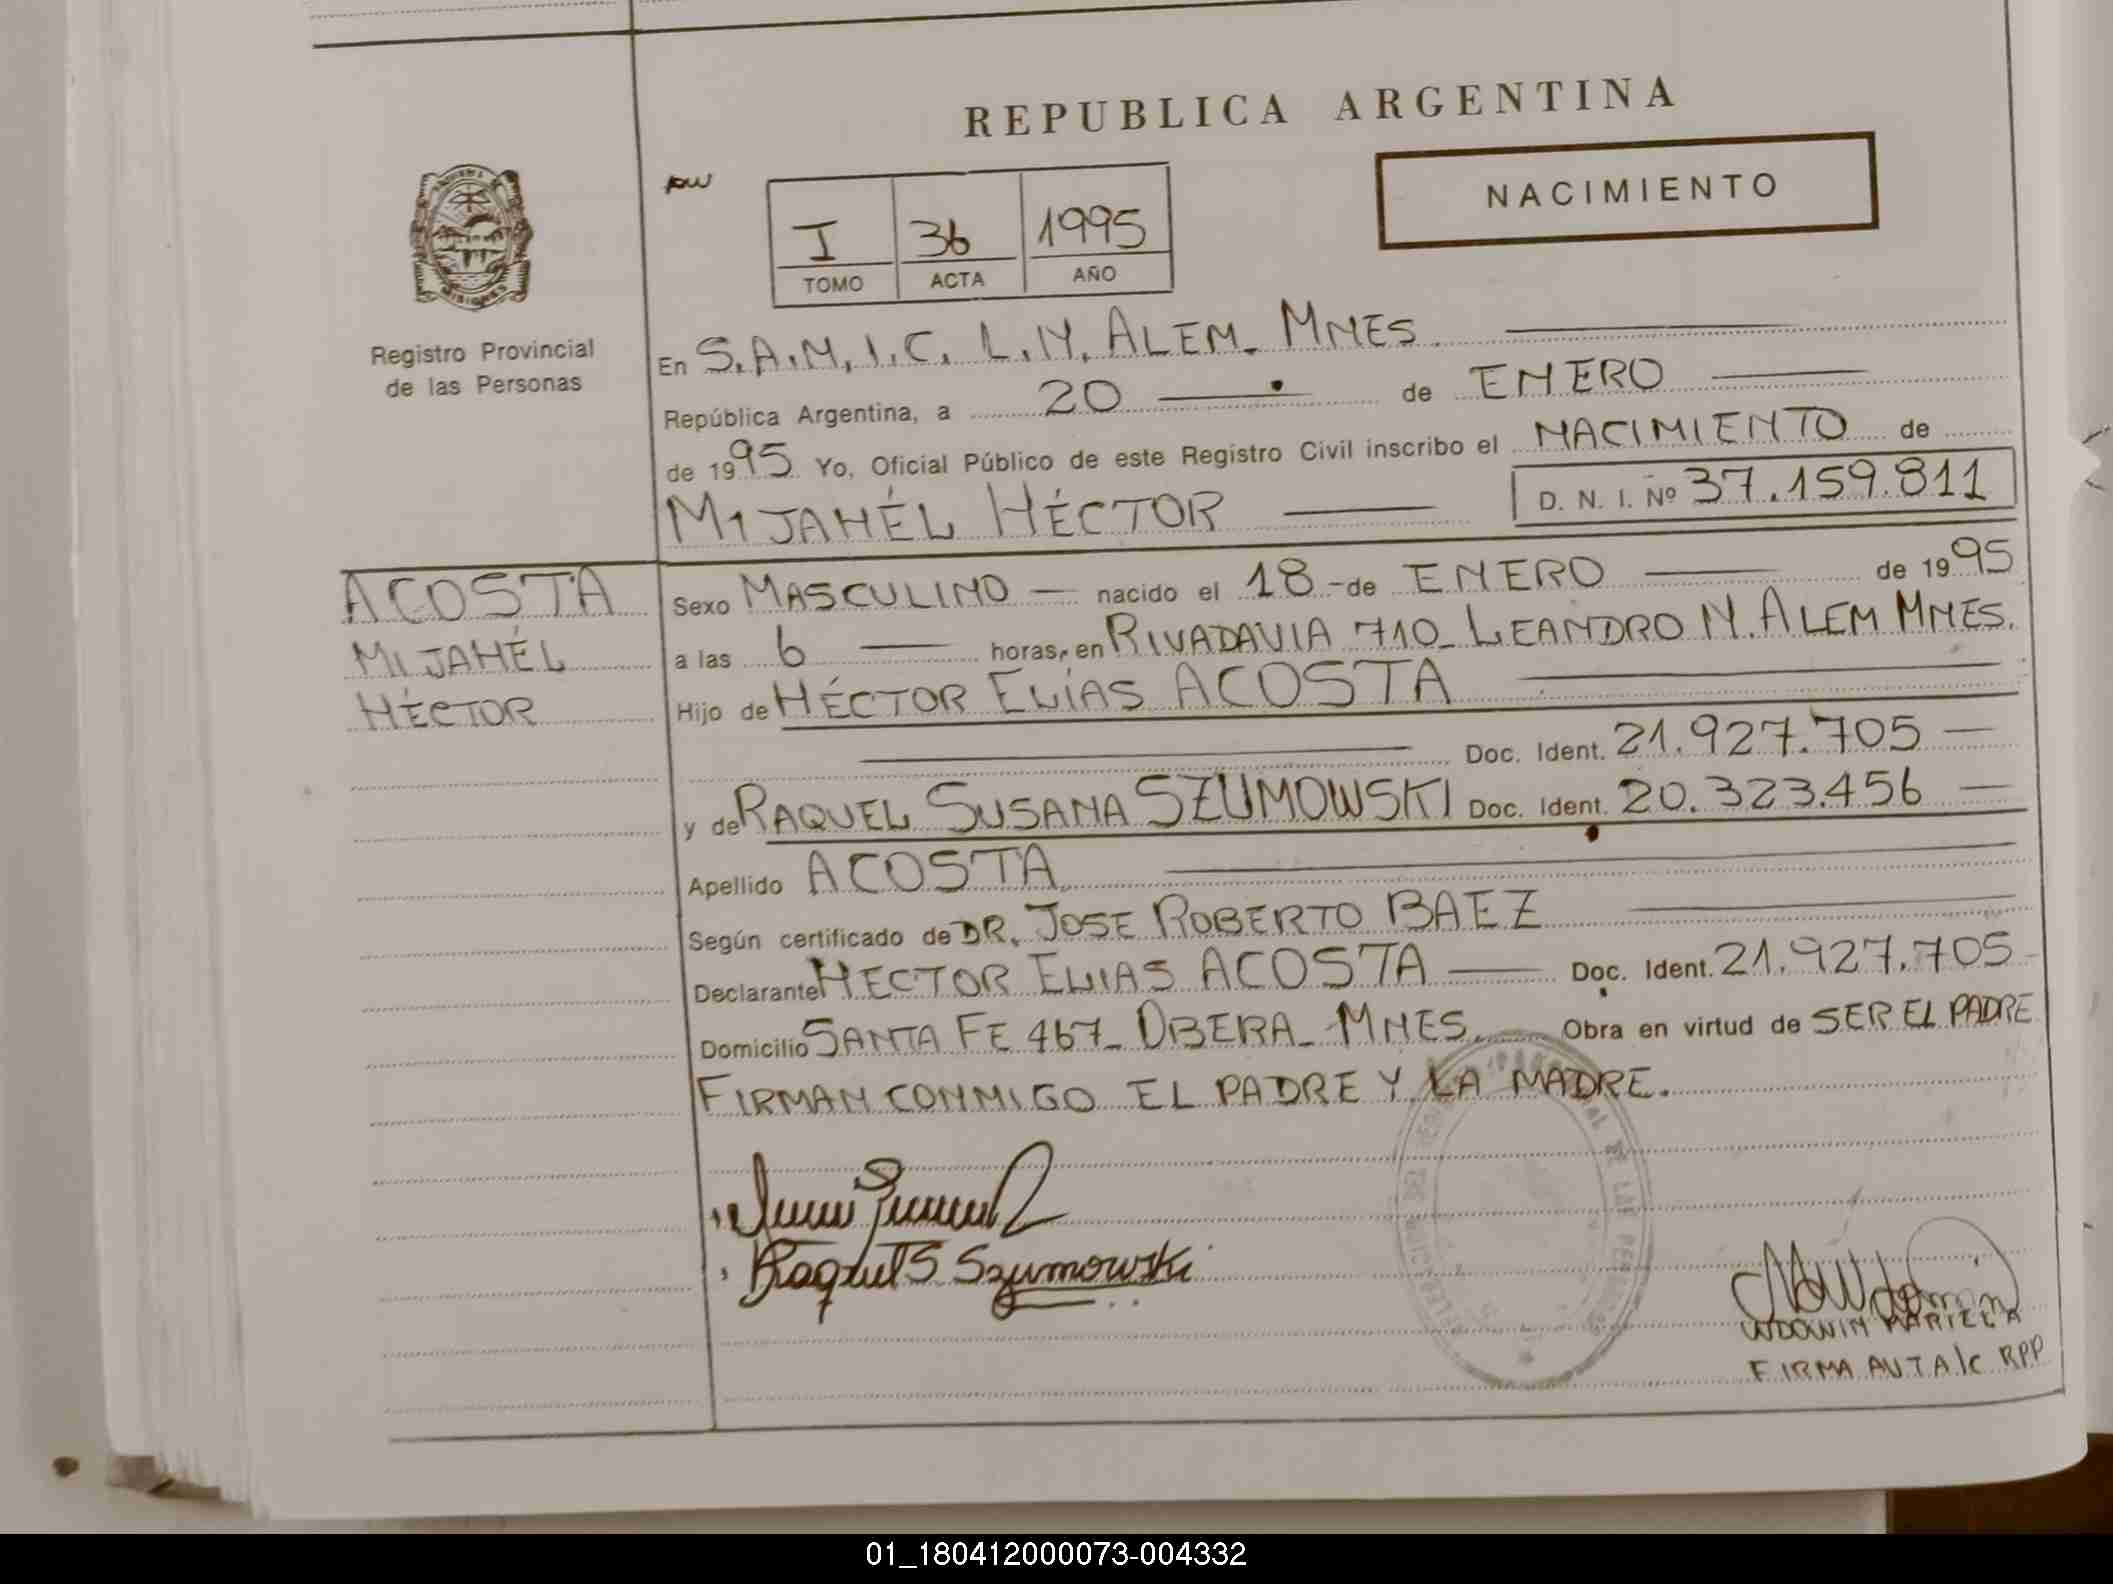 REPUBLICA ARGENTINA
NACIMIENTO
I 36 1995
TOMO ACTA AÑO
MISIONES
Registro Provincial
de las Personas
En S.A.M.I.C. L.N. ALEM. MNES.
República Argentina, a 20 de ENERO
de 1995 Yo, Oficial Público de este Registro Civil inscribo el NACIMIENTO de
MIJAHÉL HÉCTOR D. N. I. Nº 37.159.811
ACOSTA
MIJAHÉL
HÉCTOR
Sexo MASCULINO nacido el 18 - de ENERO de 1995
a las 6 horas, en RIVADAVIA 710_ LEANDRO N. ALEM MNES.
Hijo de HÉCTOR ELÍAS ACOSTA
Doc. Ident. 21.927.705
y de RAQUEL SUSANA SZUMOWSKI Doc. Ident. 20.323.456
Apellido ACOSTA
Según certificado de DR. JOSE ROBERTO BAEZ
Declarante HECTOR ELIAS ACOSTA Doc. Ident. 21.927.705
Domicilio SANTA FE 467_ OBERA_ MNES. Obra en virtud de SER EL PADRE
FIRMAN CONMIGO EL PADRE Y LA MADRE.
Raquel S Szumowski
WDOWIN MARIELA
FIRMA AUT A/C RPP
01_180412000073-004332